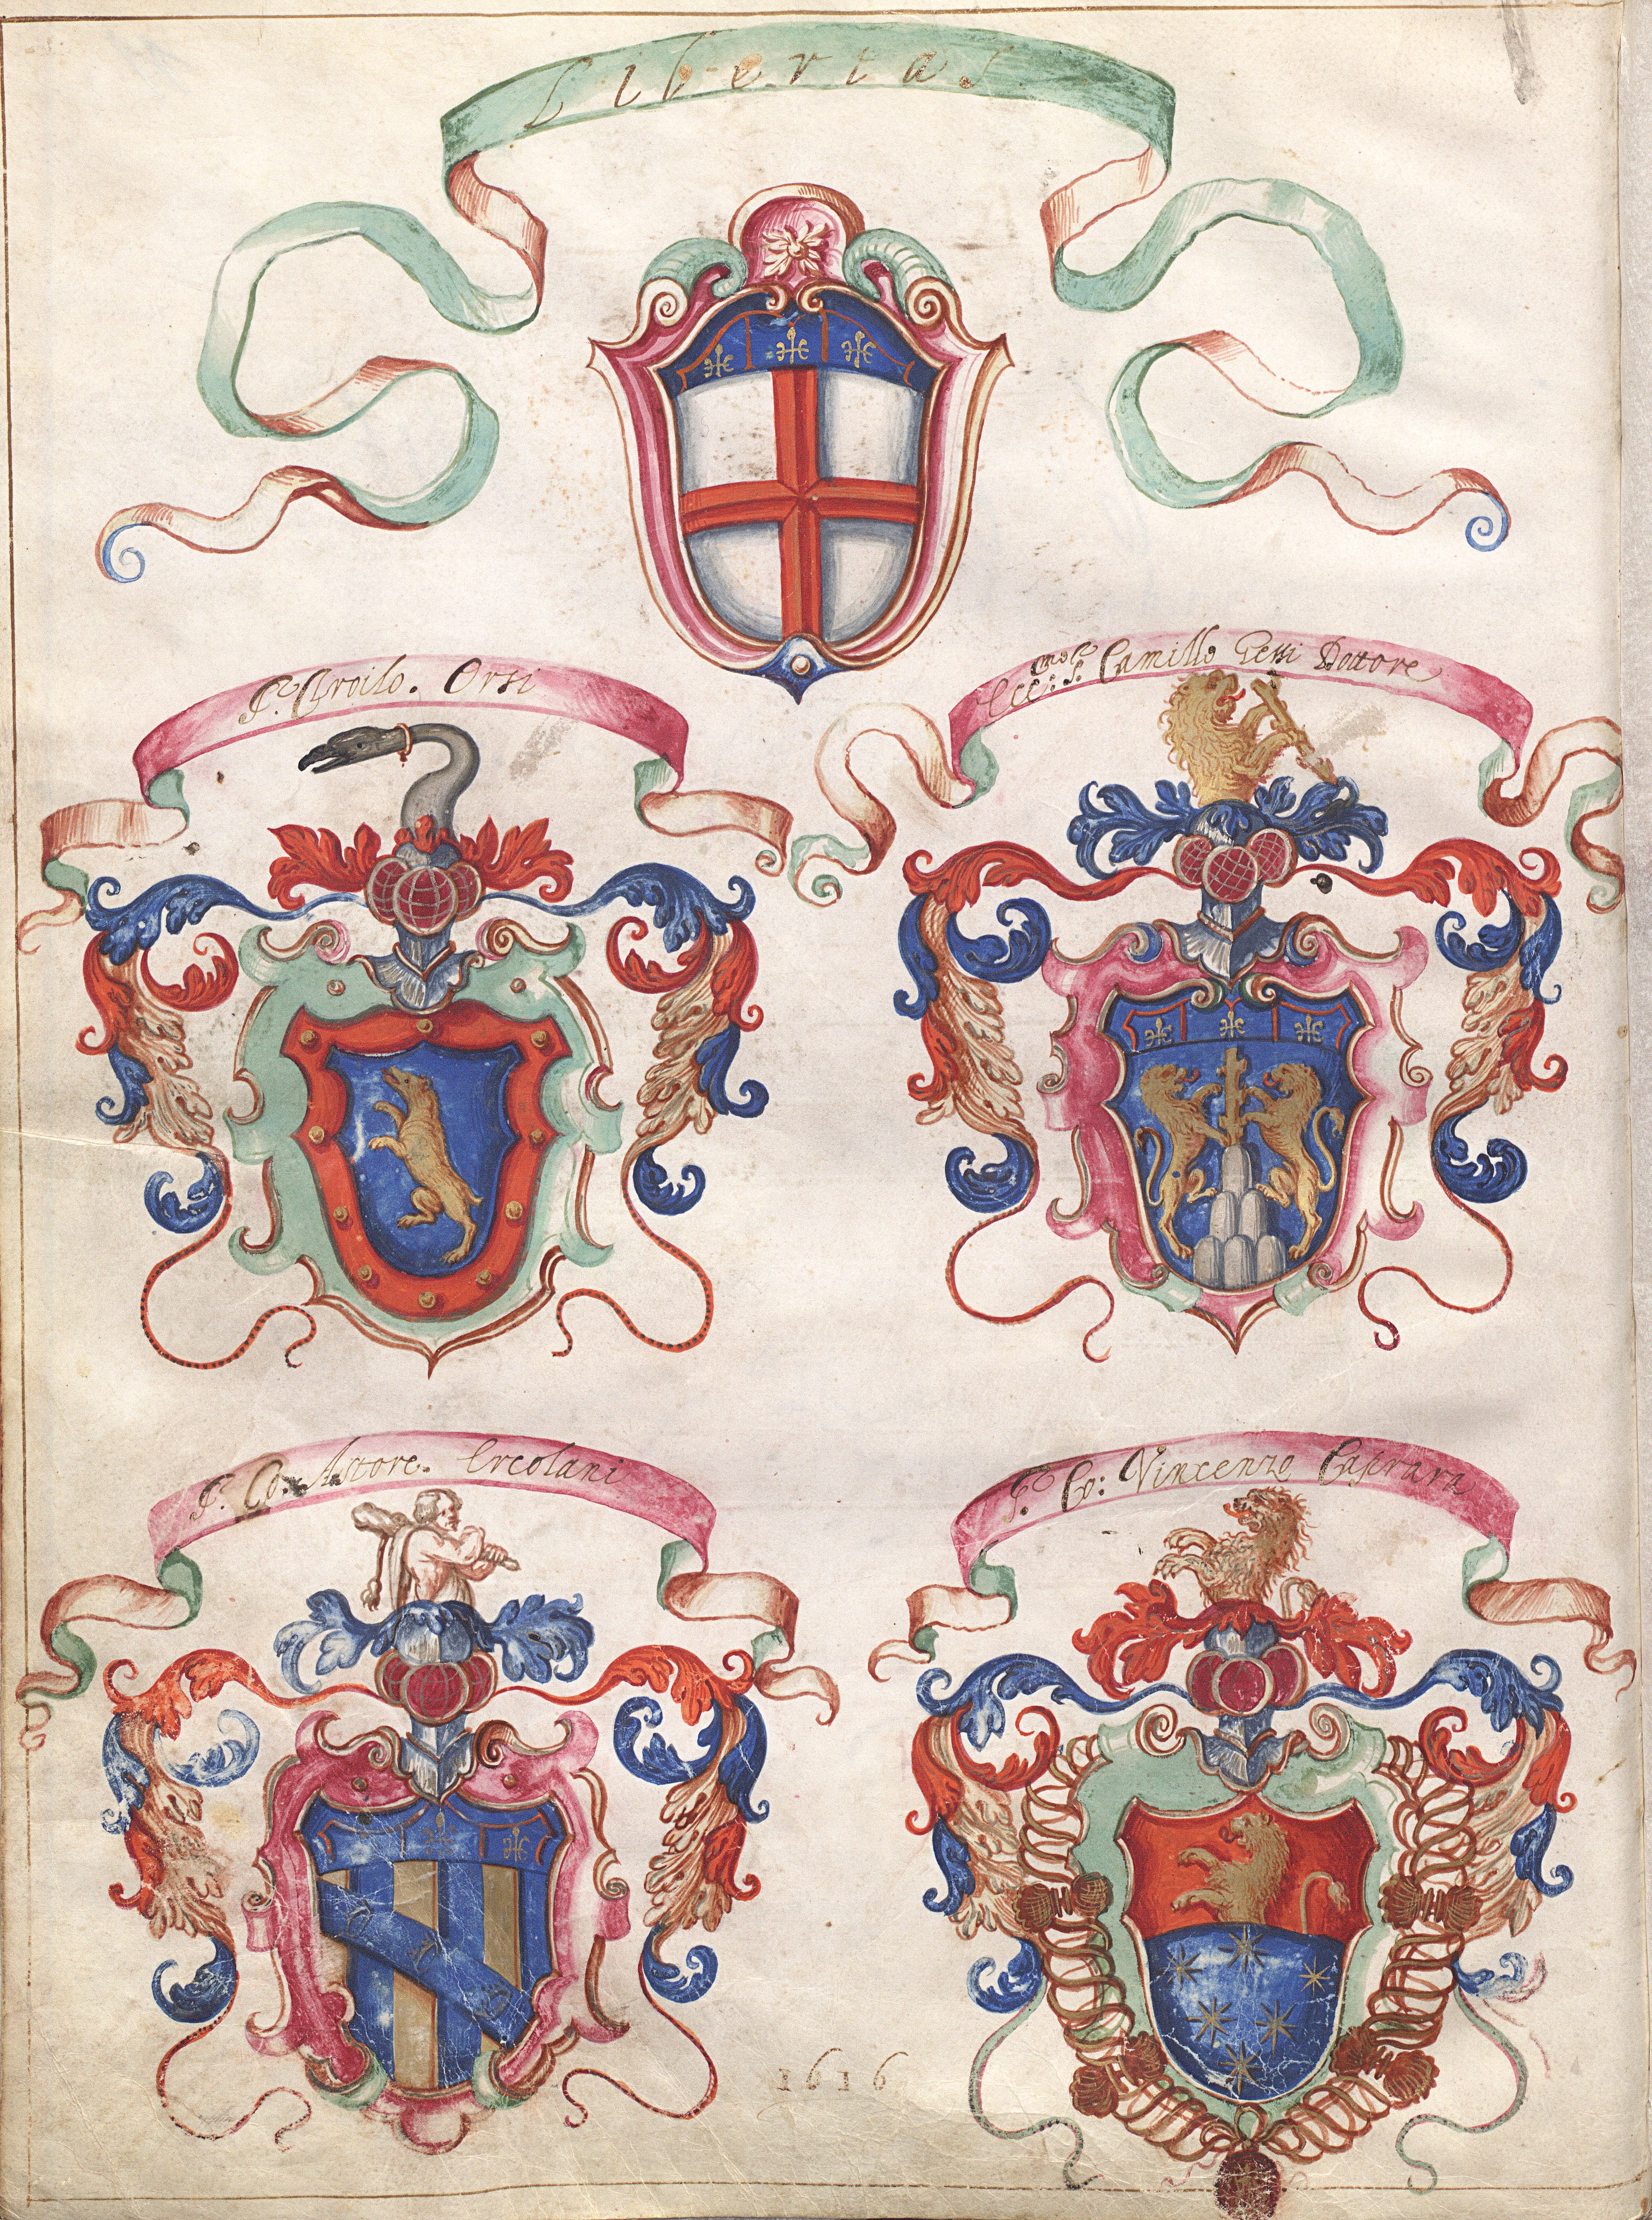 Libertas
S.r Aroilo. Orsi
Ecc.mo S.r Camillo Gessi Dottore
S.r Co: Astore. Ercolani
S.r Co: Vincenzo Caprara
1616